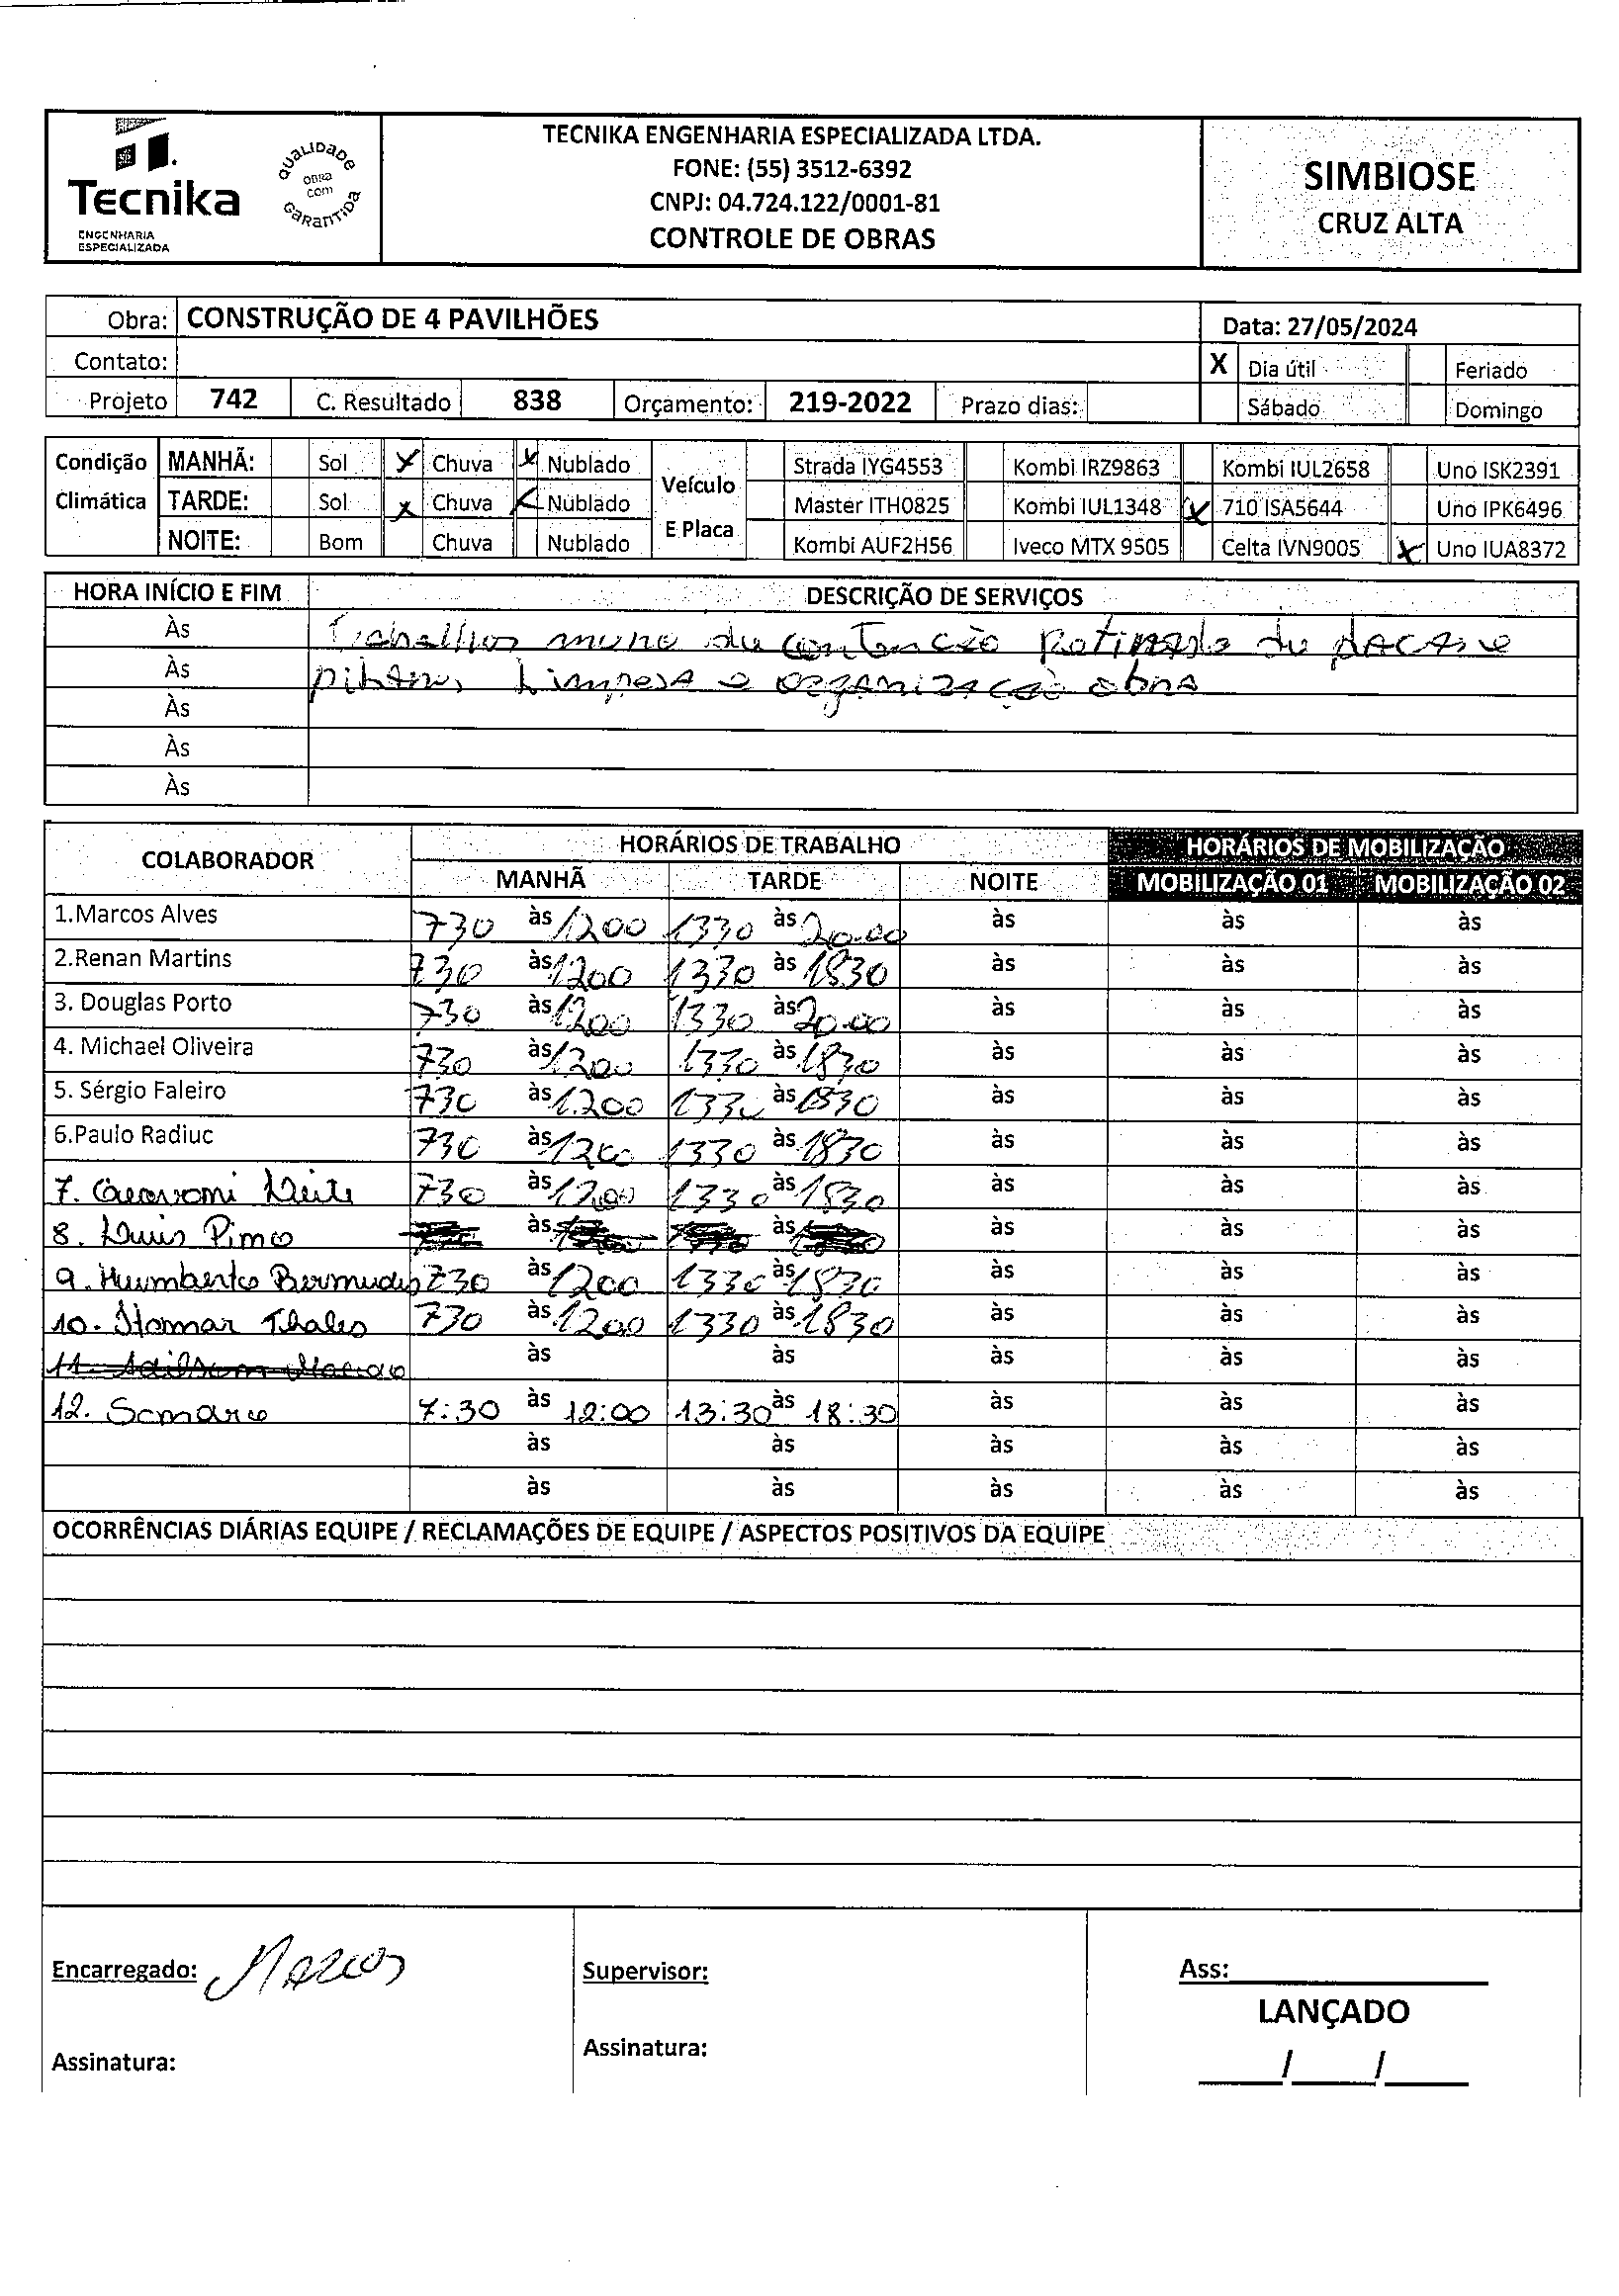 Tecnika
ENGENHARIA
ESPECIALIZADA
QUALIDADE
OBRA
COM
GARANTIDA
TECNIKA ENGENHARIA ESPECIALIZADA LTDA.
FONE: (55) 3512-6392
CNPJ: 04.724.122/0001-81
CONTROLE DE OBRAS
SIMBIOSE
CRUZ ALTA
Obra: CONSTRUÇÃO DE 4 PAVILHÕES Data: 27/05/2024
Contato: X Dia útil Feriado
Projeto 742 C. Resultado 838 Orçamento: 219-2022 Prazo dias: Sábado Domingo
Condição MANHÃ: Sol X Chuva X Nublado Veículo Strada IYG4553 Kombi IRZ9863 Kombi IUL2658 Uno ISK2391
Climática TARDE: Sol X Chuva X Nublado E Placa Master ITH0825 Kombi IUL1348 X 710 ISA5644 Uno IPK6496
NOITE: Bom Chuva Nublado Kombi AUF2H56 Iveco MTX 9505 Celta IVN9005 X Uno IUA8372
HORA INÍCIO E FIM DESCRIÇÃO DE SERVIÇOS
Às Trabalhos muro de contenção Retirada de placas e
Às pilares, Limpesa e organização obra
Às
Às
Às
COLABORADOR HORÁRIOS DE TRABALHO HORÁRIOS DE MOBILIZAÇÃO
MANHÃ TARDE NOITE MOBILIZAÇÃO 01 MOBILIZAÇÃO 02
1.Marcos Alves 730 às 1200 1330 às 20.00 às às às
2.Renan Martins 730 às 1200 1330 às 1830 às às às
3. Douglas Porto 730 às 1200 1330 às 20.00 às às às
4. Michael Oliveira 730 às 1200 1330 às 1830 às às às
5. Sérgio Faleiro 730 às 1200 1330 às 1830 às às às
6.Paulo Radiuc 730 às 1200 1330 às 1830 às às às
7. Leite 730 às 1200 1330 às 1830 às às às
8. Luis às às às às às
9. Humberto Bermudes 730 às 1200 1330 às 1830 às às às
10. Itamar Thales 730 às 1200 1330 às 1830 às às às
11. às às às às às
12. 7:30 às 12:00 13:30 às 18:30 às às às
às às às às às
às às às às às
OCORRÊNCIAS DIÁRIAS EQUIPE / RECLAMAÇÕES DE EQUIPE / ASPECTOS POSITIVOS DA EQUIPE
Encarregado: Marcos Supervisor: Ass:
LANÇADO
Assinatura: Assinatura: / /